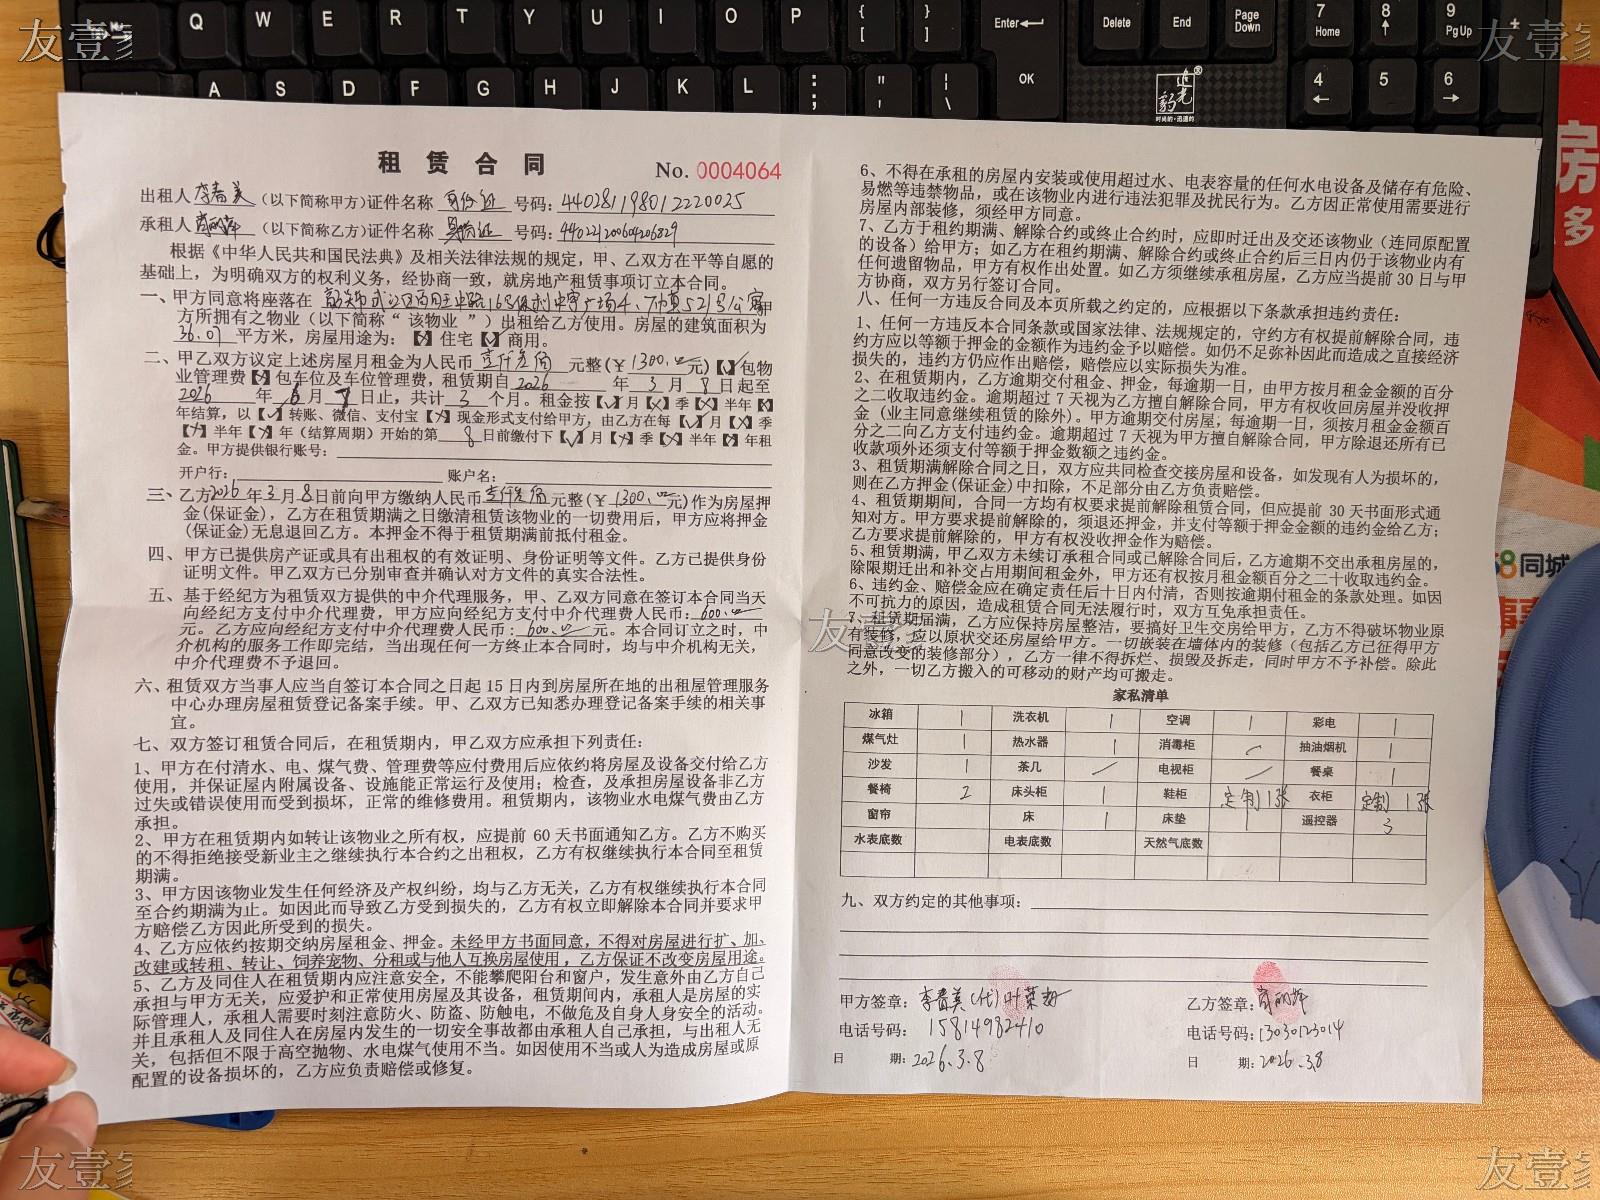 友壹家
Q W E R T Y U I O P { [ } ] Enter Delete End Page Down 7 Home 8 9 PgUp +
A S D F G H J K L : ; " ' | \ OK 4 5 6
追光豹
时尚的·迅速的
房
多
58同城
租 赁 合 同
No. 0004064
出租人李春美（以下简称甲方）证件名称 身份证 号码：440281198012220025
承租人（以下简称乙方）证件名称 身份证 号码：
根据《中华人民共和国民法典》及相关法律法规的规定，甲、乙双方在平等自愿的
基础上，为明确双方的权利义务，经协商一致，就房地产租赁事项订立本合同。
一、甲方同意将座落在 521号公寓
方所拥有之物业（以下简称“ 该物业 ”）出租给乙方使用。房屋的建筑面积为
36.07 平方米，房屋用途为：【】住宅【】商用。
二、甲乙双方议定上述房屋月租金为人民币 壹仟叁佰 元整(¥ 1300.00元)【】包物
业管理费【】包车位及车位管理费，租赁期自 2026 年 3 月 8 日起至
2026 年 6 月 7 日止，共计 3 个月。租金按【✓】月【×】季【×】半年【×】
年结算，以【✓】转账、微信、支付宝【×】现金形式支付给甲方，由乙方在每【✓】月【×】季
【×】半年【×】年（结算周期）开始的第 8 日前缴付下【✓】月【×】季【×】半年【×】年租
金。甲方提供银行账号：
开户行： 账户名：
三、乙方2026 年 3 月 8 日前向甲方缴纳人民币壹仟叁佰元整(¥ 1300.00元)作为房屋押
金(保证金)，乙方在租赁期满之日缴清租赁该物业的一切费用后，甲方应将押金
(保证金)无息退回乙方。本押金不得于租赁期满前抵付租金。
四、甲方已提供房产证或具有出租权的有效证明、身份证明等文件。乙方已提供身份
证明文件。甲乙双方已分别审查并确认对方文件的真实合法性。
五、基于经纪方为租赁双方提供的中介代理服务，甲、乙双方同意在签订本合同当天
向经纪方支付中介代理费，甲方应向经纪方支付中介代理费人民币：600.00
元。乙方应向经纪方支付中介代理费人民币：600.00 元。本合同订立之时，中
介机构的服务工作即完结，当出现任何一方终止本合同时，均与中介机构无关，
中介代理费不予退回。
六、租赁双方当事人应当自签订本合同之日起 15 日内到房屋所在地的出租屋管理服务
中心办理房屋租赁登记备案手续。甲、乙双方已知悉办理登记备案手续的相关事
宜。
七、双方签订租赁合同后，在租赁期内，甲乙双方应承担下列责任：
1、甲方在付清水、电、煤气费、管理费等应付费用后应依约将房屋及设备交付给乙方
使用，并保证屋内附属设备、设施能正常运行及使用；检查，及承担房屋设备非乙方
过失或错误使用而受到损坏，正常的维修费用。租赁期内，该物业水电煤气费由乙方
承担。
2、甲方在租赁期内如转让该物业之所有权，应提前 60 天书面通知乙方。乙方不购买
的不得拒绝接受新业主之继续执行本合约之出租权，乙方有权继续执行本合同至租赁
期满。
3、甲方因该物业发生任何经济及产权纠纷，均与乙方无关，乙方有权继续执行本合同
至合约期满为止。如因此而导致乙方受到损失的，乙方有权立即解除本合同并要求甲
方赔偿乙方因此所受到的损失。
4、乙方应依约按期交纳房屋租金、押金。未经甲方书面同意，不得对房屋进行扩、加、
改建或转租、转让、饲养宠物、分租或与他人互换房屋使用，乙方保证不改变房屋用途。
5、乙方及同住人在租赁期内应注意安全，不能攀爬阳台和窗户，发生意外由乙方自己
承担与甲方无关，应爱护和正常使用房屋及其设备，租赁期间内，承租人是房屋的实
际管理人，承租人需要时刻注意防火、防盗、防触电，不做危及自身人身安全的活动。
并且承租人及同住人在房屋内发生的一切安全事故都由承租人自己承担，与出租人无
关，包括但不限于高空抛物、水电煤气使用不当。如因使用不当或人为造成房屋或原
配置的设备损坏的，乙方应负责赔偿或修复。
6、不得在承租的房屋内安装或使用超过水、电表容量的任何水电设备及储存有危险、
易燃等违禁物品，或在该物业内进行违法犯罪及扰民行为。乙方因正常使用需要进行
房屋内部装修，须经甲方同意。
7、乙方于租约期满、解除合约或终止合约时，应即时迁出及交还该物业（连同原配置
的设备）给甲方；如乙方在租约期满、解除合约或终止合约后三日内仍于该物业内有
任何遗留物品，甲方有权作出处置。如乙方须继续承租房屋，乙方应当提前 30 日与甲
方协商，双方另行签订合同。
八、任何一方违反合同及本页所载之约定的，应根据以下条款承担违约责任：
1、任何一方违反本合同条款或国家法律、法规规定的，守约方有权提前解除合同，违
约方应以等额于押金的金额作为违约金予以赔偿。如仍不足弥补因此而造成之直接经济
损失的，违约方仍应作出赔偿，赔偿应以实际损失为准。
2、在租赁期内，乙方逾期交付租金、押金，每逾期一日，由甲方按月租金金额的百分
之二收取违约金。逾期超过 7 天视为乙方擅自解除合同，甲方有权收回房屋并没收押
金（业主同意继续租赁的除外）。甲方逾期交付房屋，每逾期一日，须按月租金金额百
分之二向乙方支付违约金。逾期超过 7 天视为甲方擅自解除合同，甲方除退还所有已
收款项外还须支付等额于押金数额之违约金。
3、租赁期满解除合同之日，双方应共同检查交接房屋和设备，如发现有人为损坏的，
则在乙方押金(保证金)中扣除，不足部分由乙方负责赔偿。
4、租赁期期间，合同一方均有权要求提前解除租赁合同，但应提前 30 天书面形式通
知对方。甲方要求提前解除的，须退还押金，并支付等额于押金金额的违约金给乙方；
乙方要求提前解除的，甲方有权没收押金作为赔偿。
5、租赁期满，甲乙双方未续订承租合同或已解除合同后，乙方逾期不交出承租房屋的，
除限期迁出和补交占用期间租金外，甲方还有权按月租金额百分之二十收取违约金。
6、违约金、赔偿金应在确定责任后十日内付清，否则按逾期付租金的条款处理。如因
不可抗力的原因，造成租赁合同无法履行时，双方互免承担责任。
7、租赁期届满，乙方应保持房屋整洁，要搞好卫生交房给甲方，乙方不得破坏物业原
有装修，应以原状交还房屋给甲方。一切嵌装在墙体内的装修（包括乙方已征得甲方
同意改变的装修部分），乙方一律不得拆烂、损毁及拆走，同时甲方不予补偿。除此
之外，一切乙方搬入的可移动的财产均可搬走。
家私清单
冰箱 1 洗衣机 1 空调 1 彩电 1
煤气灶 1 热水器 1 消毒柜 抽油烟机 1
沙发 1 茶几 电视柜 餐桌 1
餐椅 2 床头柜 1 鞋柜 定制1张 衣柜 定制1张
窗帘 床 1 床垫 1 遥控器 3
水表底数 电表底数 天然气底数
九、双方约定的其他事项：
甲方签章：李春美(代)
乙方签章：
电话号码：15814982410
电话号码：13030123014
日 期：2026.3.8
日 期：2026.3.8
友壹家
友壹家
友壹家
友壹家